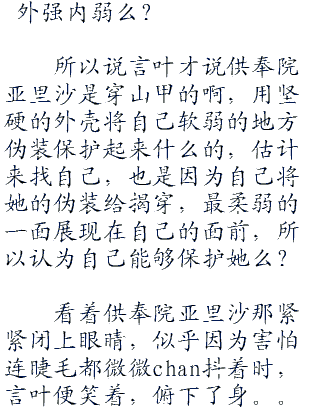 外强内弱么？
所以说言叶才说供奉院
亚里沙是穿山甲的啊，用坚
硬的外壳将自己软弱的地方
伪装保护起来什么的，估计
来找自己，也是因为自己将
她的伪装给捣穿，最柔弱的
一面展现在自己的面前，所
以认为自己能够保护她么？
看着供奉院亚里沙那紧
紧闭上眼睛，似乎因为害怕
连睫毛都微微chan抖着时，
言叶便笑着，俯下了身。。